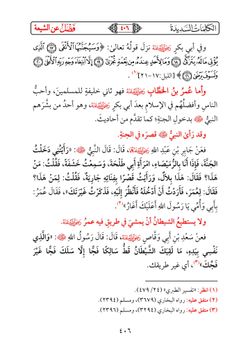 الكلمات السديدة
٤٠٦
فضل عن الشيعة
وفي أبي بكر رضي الله عنه نزل قوله تعالى: ﴿وَسَيُجَنَّبُهَا الْأَتْقَى ۝١٧ الَّذِي
يُؤْتِي مَالَهُ يَتَزَكَّى ۝١٨ وَمَا لِأَحَدٍ عِنْدَهُ مِنْ نِعْمَةٍ تُجْزَى ۝١٩ إِلَّا ابْتِغَاءَ وَجْهِ رَبِّهِ الْأَعْلَى ۝٢٠
وَلَسَوْفَ يَرْضَى ۝٢١﴾ [الليل: ١٧-٢١](١).
وأما عُمرُ بنُ الخطَّاب رضي الله عنه فهو ثاني خليفةٍ للمسلمين، وأحبُّ
الناسِ وأفضلُهُم في الإسلام بعدَ أبي بكرٍ رضي الله عنه، وهو أحدُ من بشَّرَهم
النبيُّ ﷺ بدخولِ الجنةِ؛ كما تقدَّم من أحاديث.
وقد رأى النبيُّ ﷺ قصرَه في الجنةِ.
فعنْ جابرِ بنِ عبدِ اللهِ رضي الله عنه، قالَ: قالَ النَّبيُّ ﷺ: «رَأَيْتُنِي دَخَلْتُ
الجَنَّةَ، فَإِذَا أَنَا بِالرُّمَيْصَاءِ، امْرَأَةِ أَبِي طَلْحَةَ، وَسَمِعْتُ خَشَفَةً، فَقُلْتُ: مَنْ
هَذَا؟ فَقَالَ: هَذَا بِلَالٌ، وَرَأَيْتُ قَصْرًا بِفِنَائِهِ جَارِيَةٌ، فَقُلْتُ: لِمَنْ هَذَا؟
فَقَالَ: لِعُمَرَ، فَأَرَدْتُ أَنْ أَدْخُلَهُ فَأَنْظُرَ إِلَيْهِ، فَذَكَرْتُ غَيْرَتَكَ»، فَقَالَ عُمَرُ:
بِأَبِي وَأُمِّي يَا رَسُولَ اللهِ أَعَلَيْكَ أَغَارُ؟(٢).
ولا يستطيعُ الشيطانُ أنْ يمشيَ في طريقٍ فيه عمرُ رضي الله عنه.
فعنْ سعدِ بنِ أبي وقَّاصٍ رضي الله عنه، قالَ: قالَ رسُولُ اللهِ ﷺ: «وَالَّذِي
نَفْسِي بِيَدِهِ، مَا لَقِيَكَ الشَّيْطَانُ قَطُّ سَالِكًا فَجًّا إِلَّا سَلَكَ فَجًّا غَيْرَ
فَجِّكَ»(٣)، أي غيرِ طريقِك.
(١) انظر: «تفسير الطبري» (٢٤/ ٤٧٩).
(٢) متفق عليه: رواه البخاري (٣٦٧٩)، ومسلم (٢٣٩٤).
(٣) متفق عليه: رواه البخاري (٣٢٩٤)، ومسلم (٢٣٩٦).
٤٠٦